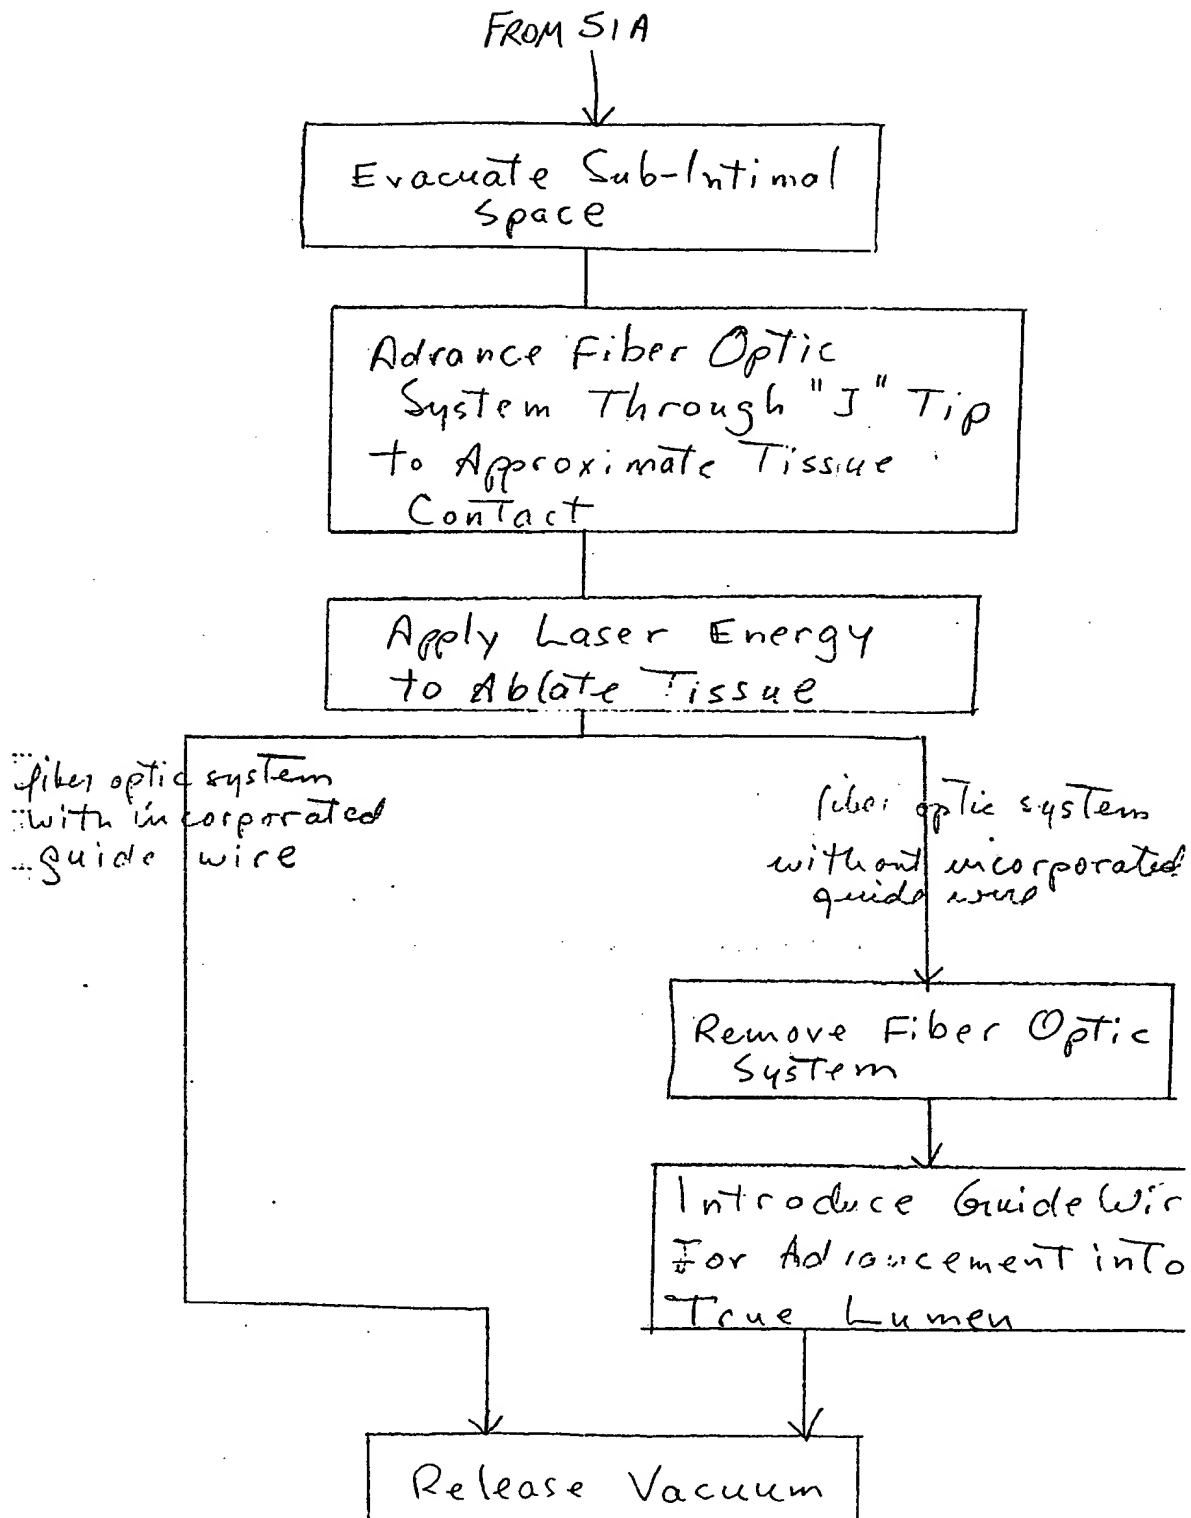 FROM 51A
Evacuate Sub-Intimal
Space
Advance Fiber Optic
System Through "J" Tip
to Approximate Tissue
Contact
Apply Laser Energy
to Ablate Tissue
fiber optic system
with incorporated
guide wire
fiber optic system
without incorporated
guide wire
Remove Fiber Optic
System
Introduce Guide Wir
For Advancement into
True Lumen
Release Vacuum